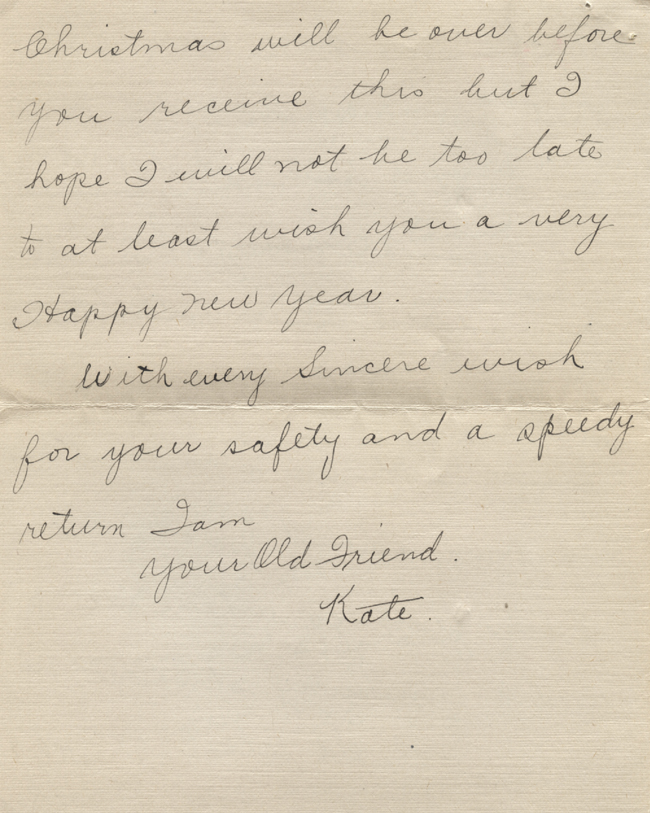 Christmas will be over before
you receive this but I
hope I will not be too late
to at least wish you a very
Happy New Year.
With every Sincere wish
for your safety and a speedy
return I am
your Old Friend.
Kate.